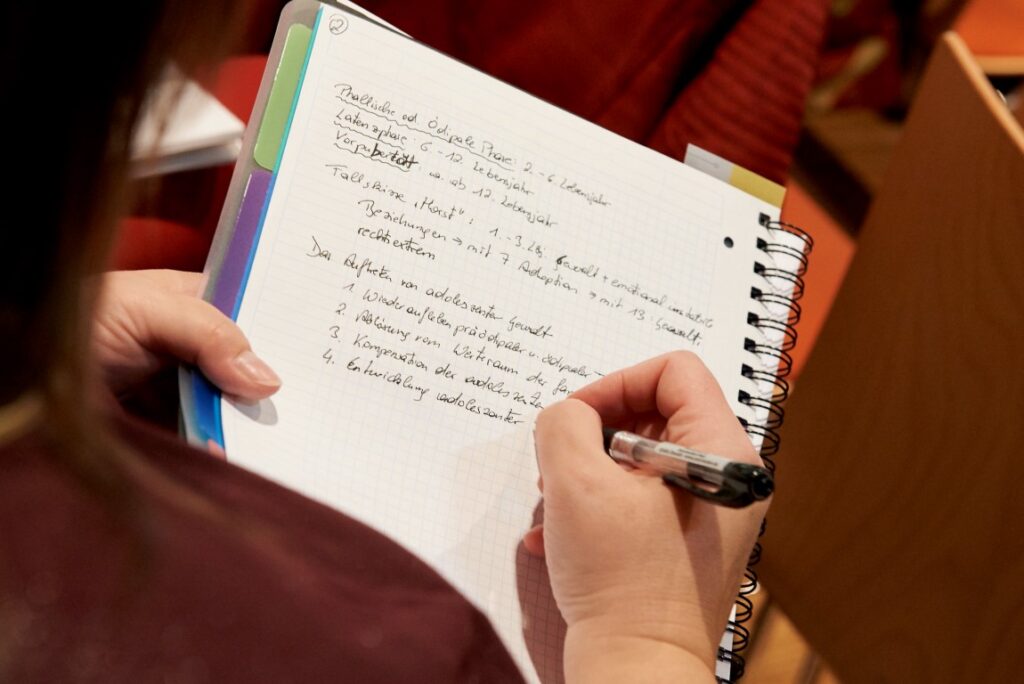 2
Phallische od Ödipale Phase: 2.-6. Lebensjahr
Latenzphase: 6.-12. Lebensjahr
Vorpubertät: ca. ab 12. Lebensjahr
Fallskizze „Horst“: 1.-3. Lbj: Gewalt + emotional instabile
Beziehungen → mit 7 Adoption → mit 13: Gewalt.
rechtsextrem
Das Auftreten von adoleszenter Gewalt
1. Wiederaufleben präödipaler u. ödipaler
2. Ablösung vom Werteraum der
3. Kompensation der adoleszenten
4. Entwicklung adoleszenter